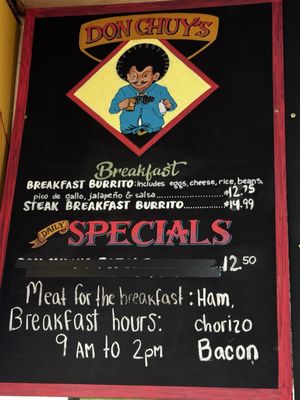 DON CHUY'S
Breakfast
BREAKFAST BURRITO: includes eggs, cheese, rice, beans,
pico de gallo, jalapeño & salsa..................$12.75
STEAK BREAKFAST BURRITO...........$14.99
DAILY SPECIALS
12.50
Meat for the breakfast: Ham,
Breakfast hours: chorizo
9 AM to 2pm Bacon